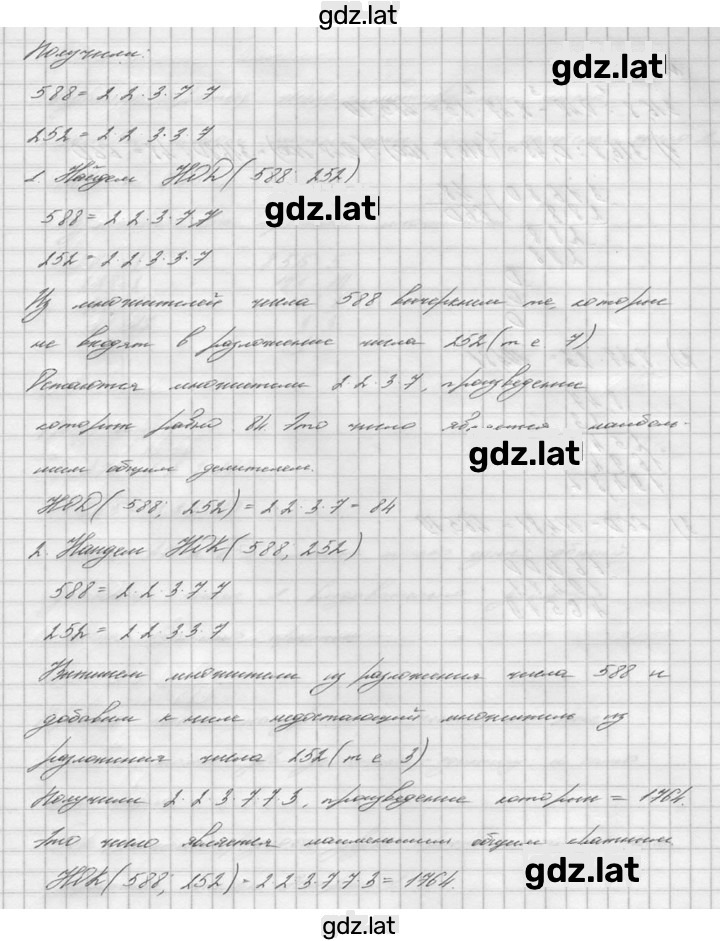 gdz.lat
Получили:
gdz.lat
588 = 2 2 · 3 · 7 · 7
252 = 2 · 2 · 3 · 3 · 7
1. Найдем НОД ( 588; 252)
588 = 2 · 2 · 3 · 7 · 7
gdz.lat
252 = 2 · 2 · 3 · 3 · 7
Из множителей числа 588 вычеркнем те, которые
не входят в разложение числа 252 (т е 7)
Остаются множители 2 2 · 3 · 7, произведение
которых равно 84. Это число является наиболь-
шим общим делителем.
gdz.lat
НОД ( 588; 252) = 2 2 · 3 · 7 = 84
2. Найдем НОК ( 588, 252)
588 = 2 · 2 · 3 · 7 · 7
252 = 2 2 · 3 3 · 7
Выпишем множители из разложения числа 588 и
добавим к ним недостающий множитель из
разложения числа 252 (т е 3)
Получили 2 · 2 3 · 7 7 3, произведение которых = 1764.
Это число является наименьшим общим кратным.
gdz.lat
НОК ( 588; 252) = 2 2 · 3 · 7 7 · 3 = 1764.
gdz.lat